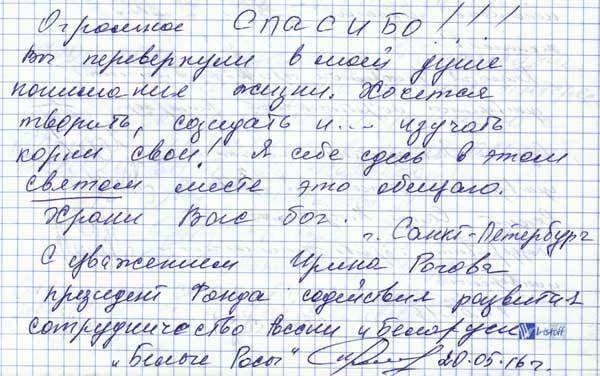 Огромное СПАСИБО!!!
Вы перевернули в моей душе
понимание жизни. Хочется
творить, созидать и... изучать
корни свои! Я себе здесь в этом
святом месте это обещаю.
Храни Вас бог.
г. Санкт-Петербург
С уважением Ирина Рогова
президент Фонда содействия развития
сотрудничества России и Беларуси
"Белые Росы" 20.05.16 г.